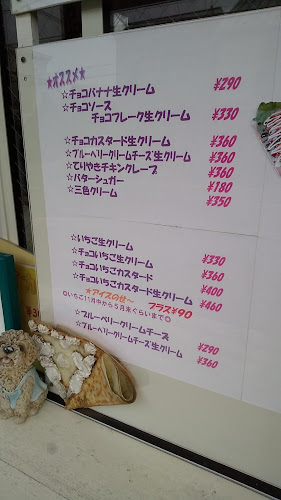 ★オススメ★
☆チョコバナナ生クリーム ¥290
☆チョコソース
チョコフレーク生クリーム ¥330
☆チョコカスタード生クリーム ¥360
☆ブルーベリークリームチーズ生クリーム ¥360
☆てりやきチキンクレープ ¥360
☆バターシュガー ¥180
☆三色クリーム ¥350
☆いちご生クリーム ¥330
☆チョコいちご生クリーム ¥360
☆チョコいちごカスタード ¥400
☆チョコいちごカスタード生クリーム ¥460
★アイスのせ〜 プラス¥90
◎いちご11月中から5月末ぐらいまで◎
☆ブルーベリークリームチーズ ¥290
☆ブルーベリークリームチーズ生クリーム ¥360